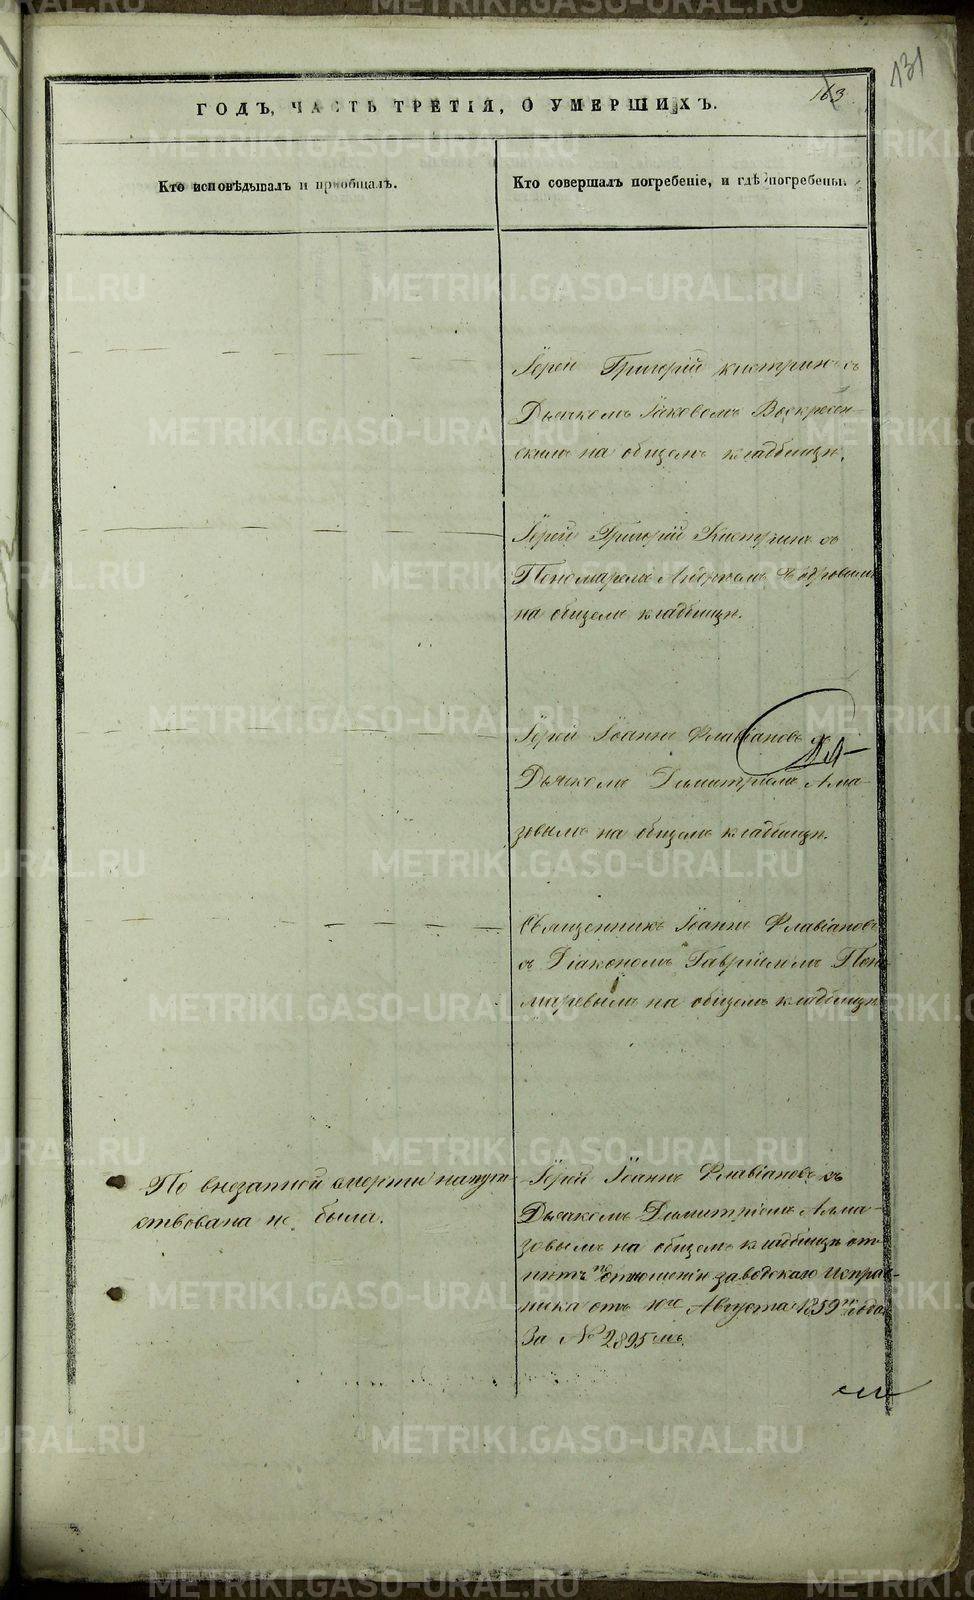 131
163
ГОДЪ, ЧАСТЬ ТРЕТІЯ, О УМЕРШИХЪ.
Кто исповѣдывалъ и пріобщалъ.
Кто совершалъ погребеніе, и гдѣ погребены.
Іерей Григорій Кистринъ съ
Дьячкомъ Іаковомъ Воскресен-
скимъ на общемъ кладбищѣ.
Іерей Григорій Кистринъ съ
Пономаремъ
на общемъ кладбищѣ.
Іерей Іоаннъ Флавіановъ съ
Дьячкомъ Димитріемъ Алма-
зовымъ на общемъ кладбищѣ.
Священникъ Іоаннъ Флавіановъ
съ Діакономъ Гавріиломъ Поно-
маревымъ на общемъ кладбищѣ
По внезапной смерти напут-
ствована не была.
Іерей Іоаннъ Флавіановъ съ
Дьячкомъ Димитріемъ Алма-
зовымъ на общемъ кладбищѣ от-
по отношенію заводскаго Исправ-
ника отъ Августа 1859 года
За № 2895мъ.
METRIKI.GASO-URAL.RU